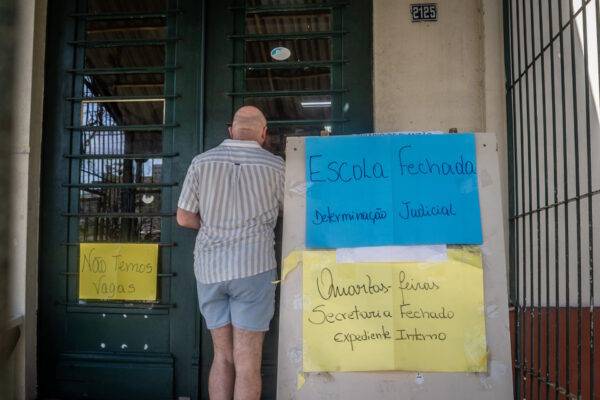 2125
Escola Fechada
Determinação Judicial
Não Temos
Vagas
Quartas-feiras
Secretaria Fechado
Expediente Interno